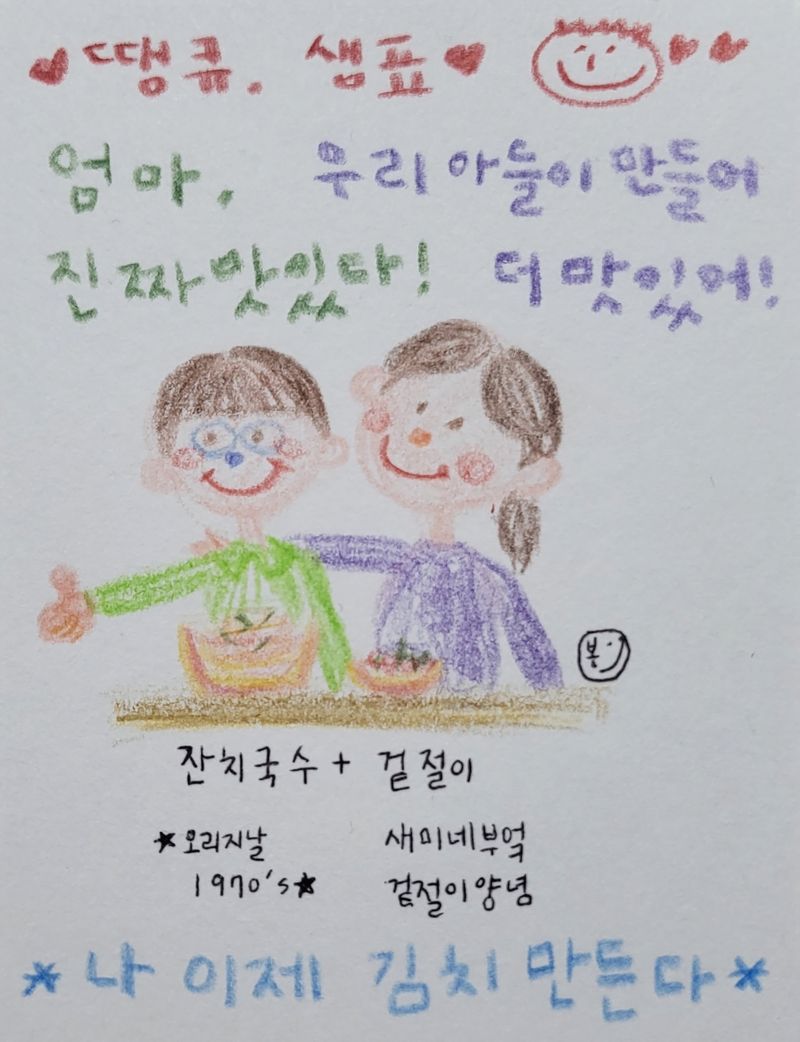 ♥땡큐. 샘표♥ ♥♥
엄마, 우리아들이 만들어
진짜맛있다! 더 맛있어!
봉
잔치국수 + 겉절이
★오리지날 새미네부엌
1970's★ 겉절이양념
*나 이제 김치 만든다*